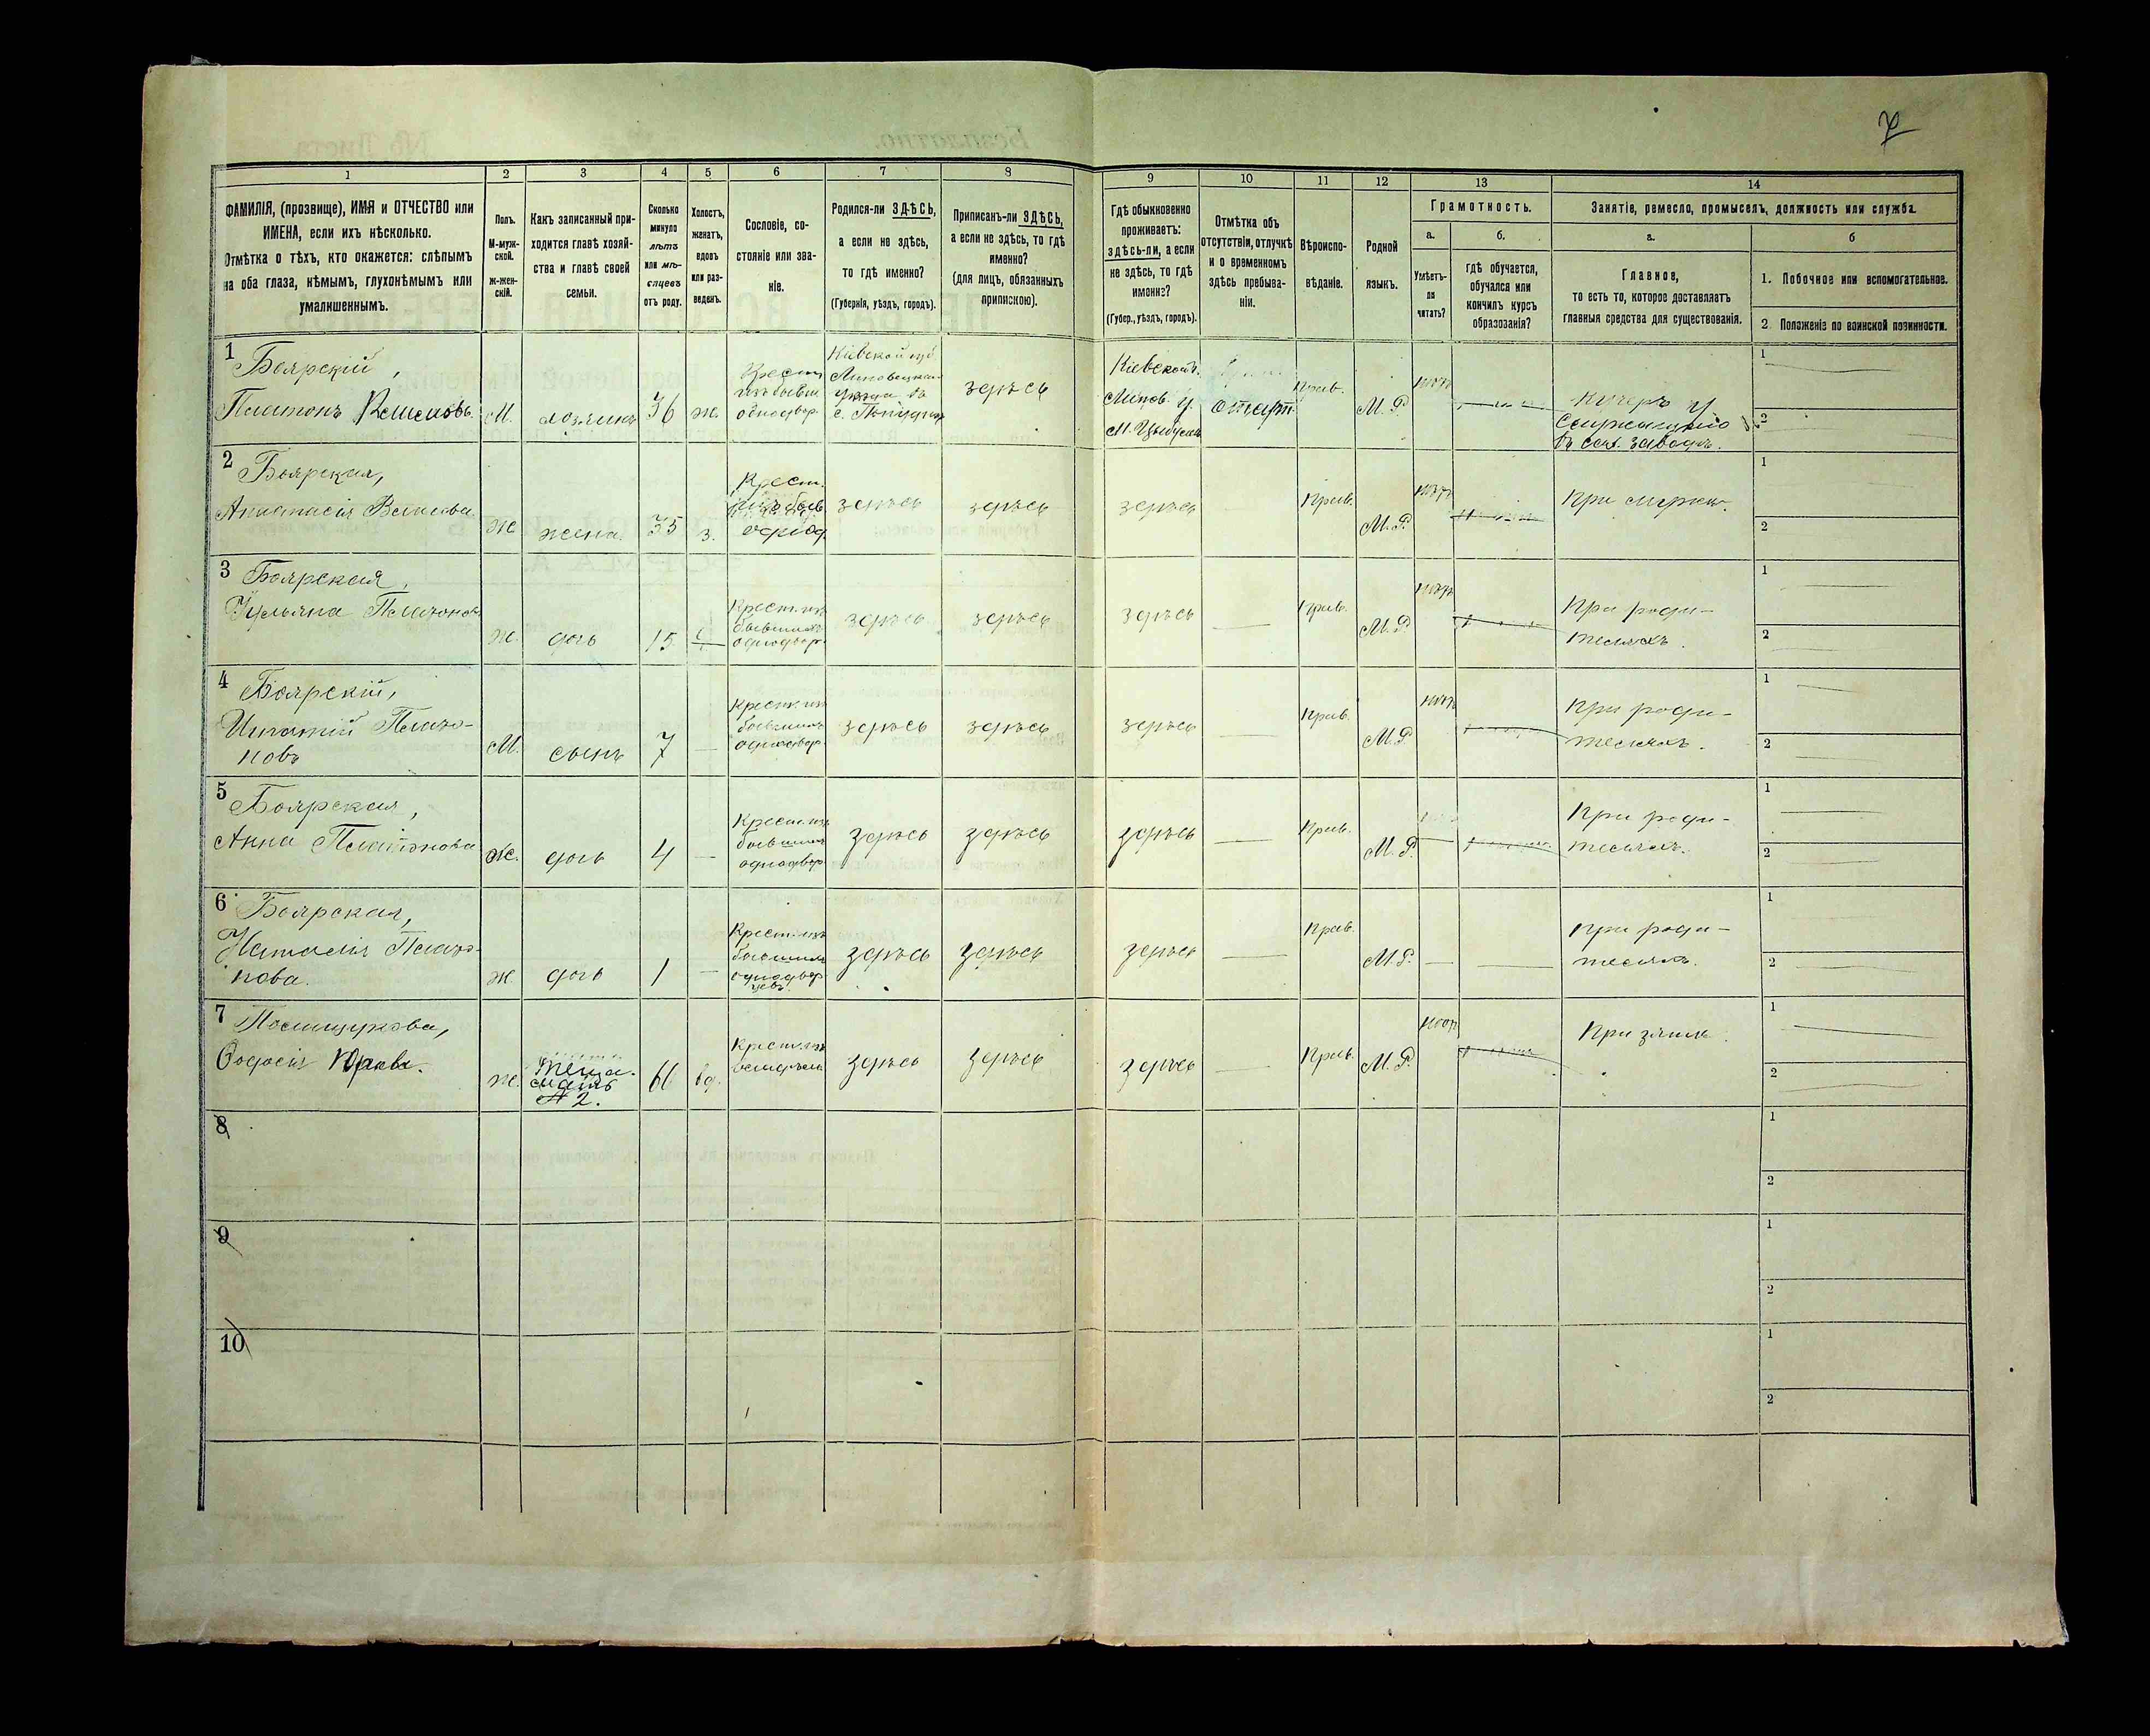 7
1 2 3 4 5 6 7 8 9 10 11 12 13 14
ФАМИЛІЯ, (прозвище), ИМЯ и ОТЧЕСТВО или
ИМЕНА, если ихъ нѣсколько.
Отмѣтка о тѣхъ, кто окажется: слѣпымъ
на оба глаза, нѣмымъ, глухонѣмымъ или
умалишеннымъ.
Полъ.
М-муж-
ской.
ж-жен-
скій.
Какъ записанный при-
ходится главѣ хозяй-
ства и главѣ своей
семьи.
Сколько
минуло
лѣтъ
или мѣ-
сяцевъ
отъ роду.
Холостъ,
женатъ,
вдовъ
или раз-
веденъ.
Сословіе, со-
стояніе или зва-
ніе.
Родился-ли ЗДѢСЬ,
а если не здѣсь,
то гдѣ именно?
(Губернія, уѣздъ, городъ).
Приписанъ-ли ЗДѢСЬ,
а если не здѣсь, то гдѣ
именно?
(для лицъ, обязанныхъ
припискою).
Гдѣ обыкновенно
проживаетъ:
здѣсь-ли, а если
не здѣсь, то гдѣ
именно?
(Губер., уѣздъ, городъ).
Отмѣтка объ
отсутствіи, отлучкѣ
и о временномъ
здѣсь пребыва-
ніи.
Вѣроиспо-
вѣданіе.
Родной
языкъ.
Грамотность.
а.
Умѣетъ-
ли
читать?
б.
гдѣ обучается,
обучался или
кончилъ курсъ
образованія?
Занятіе, ремесло, промыселъ, должность или служба.
а.
Главное,
то есть то, которое доставляетъ
главныя средства для существованія.
б
1. Побочное или вспомогательное.
2 Положеніе по воинской повинности.
1 Боярскій,
Платонъ
М. хозяинъ 36 ж.
Крест.
изъ бывш.
однодвор.
Кіевской губ.
Липовецкаго
уѣзда
здѣсь
Кіевской г.
Липов. у.
отлуч.
Прав. М. Р. нѣтъ
Кучеръ у
въ сах. заводѣ.
1
2
2 Боярская,
Анастасія
ж жена. 35 з.
Крест.
изъ быв.
однод.
здѣсь здѣсь здѣсь Прав. М. Р. нѣтъ При мужѣ.
1
2
3 Боярская,
Ульяна Платонов.
ж. дочь 15
Крест. изъ
бывшихъ
однодвор.
здѣсь здѣсь здѣсь Прав. М. Р. нѣтъ
При роди-
теляхъ.
1
2
4 Боярскій,
Игнатій Плато-
новъ
М. сынъ 7
Крест. изъ
бывшихъ
однодвор.
здѣсь здѣсь здѣсь Прав. М. Р. нѣтъ
При роди-
теляхъ.
1
2
5 Боярская,
Анна Платонова
ж. дочь 4
Крест. изъ
бывшихъ
однодвор.
здѣсь здѣсь здѣсь Прав. М. Р.
При роди-
теляхъ.
1
2
6 Боярская,
Наталія Плато-
нова.
ж. дочь 1
Крест. изъ
бывшихъ
однодвор
цевъ.
здѣсь здѣсь здѣсь Прав. М. Р.
При роди-
теляхъ.
1
2
7 Полищукова,
Ѳодосія
ж.
Теща.
мать
№ 2.
66 вд.
Крест. изъ
здѣсь здѣсь здѣсь Прав. М. Р. нѣтъ При зятѣ.
1
2
8
1
2
9
1
2
10
1
2